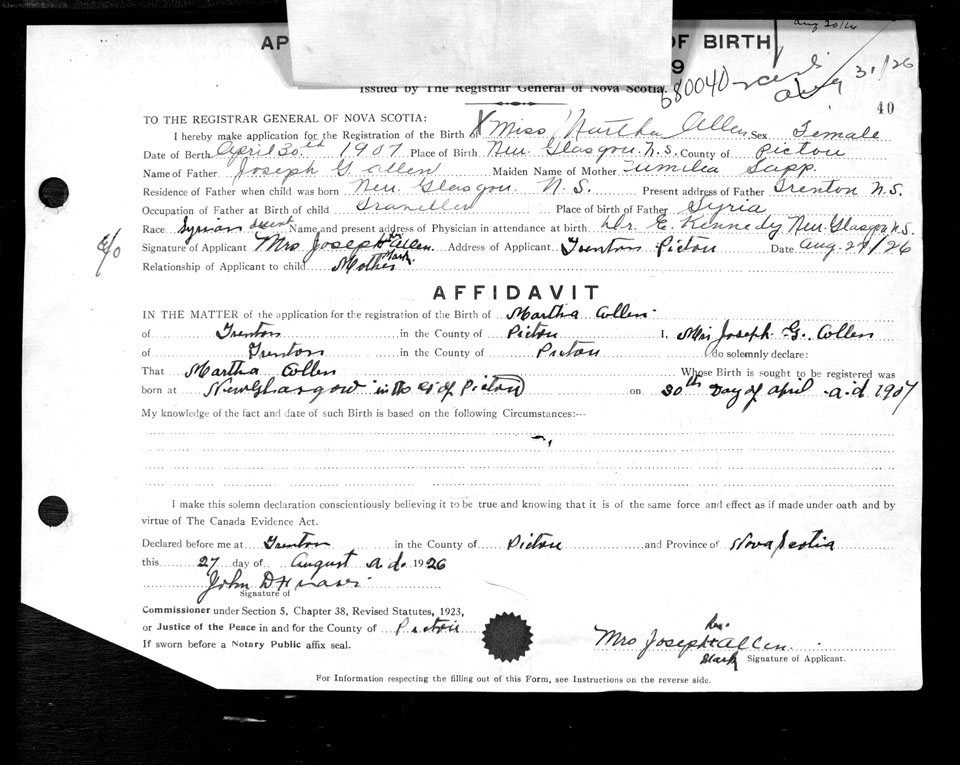 Aug 30/26
AP OF BIRTH
9
Issued by The Registrar General of Nova Scotia.
680040
Aug 31/26
40
TO THE REGISTRAR GENERAL OF NOVA SCOTIA:
I hereby make application for the Registration of the Birth of X Miss Martha Allen Sex Female
Date of Berth April 30th 1907 Place of Birth New Glasgow N.S. County of Pictou
Name of Father Joseph G. Allen Maiden Name of Mother Sapp.
Residence of Father when child was born New Glasgow N.S. Present address of Father Trenton N.S.
Occupation of Father at Birth of child Traveller Place of birth of Father Syria
Race Syrian descent Name and present address of Physician in attendance at birth Dr. E. Kennedy New Glasgow N.S.
Signature of Applicant Mrs Joseph Allen. Address of Applicant Trenton Pictou Date Aug. 27/26
c/o
Relationship of Applicant to child Mother Mark
AFFIDAVIT
IN THE MATTER of the application for the registration of the Birth of Martha Allen
of Trenton in the County of Pictou I, Mrs Joseph G. Allen
of Trenton in the County of Pictou do solemnly declare:
That Martha Allen Whose Birth is sought to be registered was
born at New Glasgow in the Co of Pictou on 30th Day of April a.d 1907
My knowledge of the fact and date of such Birth is based on the following Circumstances:---
I make this solemn declaration conscientiously believing it to be true and knowing that it is of the same force and effect as if made under oath and by
virtue of The Canada Evidence Act.
Declared before me at Trenton in the County of Pictou and Province of Nova Scotia
this 27 day of August a.d. 1926
John D Fraser
Signature of
Commissioner under Section 5, Chapter 38, Revised Statutes, 1923,
or Justice of the Peace in and for the County of Pictou
If sworn before a Notary Public affix seal.
her
Mrs Joseph x Allen.
Mark Signature of Applicant.
For Information respecting the filling out of this Form, see Instructions on the reverse side.